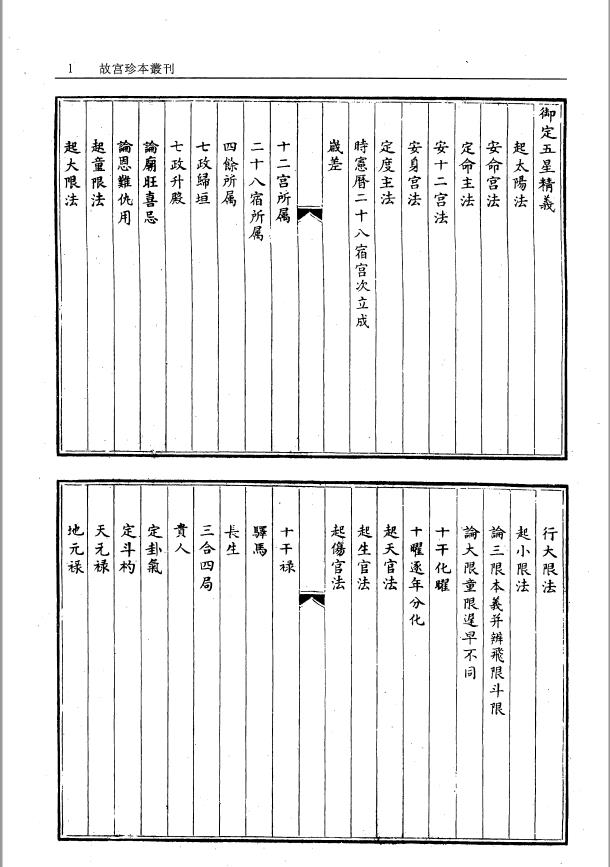 1 故宮珍本叢刊
御定五星精義
起太陽法
安命宮法
定命主法
安十二宮法
安身宮法
定度主法
時憲曆二十八宿宮次立成
歲差
十二宮所属
二十八宿所属
四餘所属
七政歸垣
七政升殿
論廟旺喜忌
論恩難仇用
起童限法
起大限法
行大限法
起小限法
論三限本義并辨飛限斗限
論大限童限遲早不同
十干化曜
十曜逐年分化
起天官法
起生官法
起傷官法
十干禄
驛馬
長生
三合四局
貴人
定卦氣
定斗杓
天元禄
地元禄